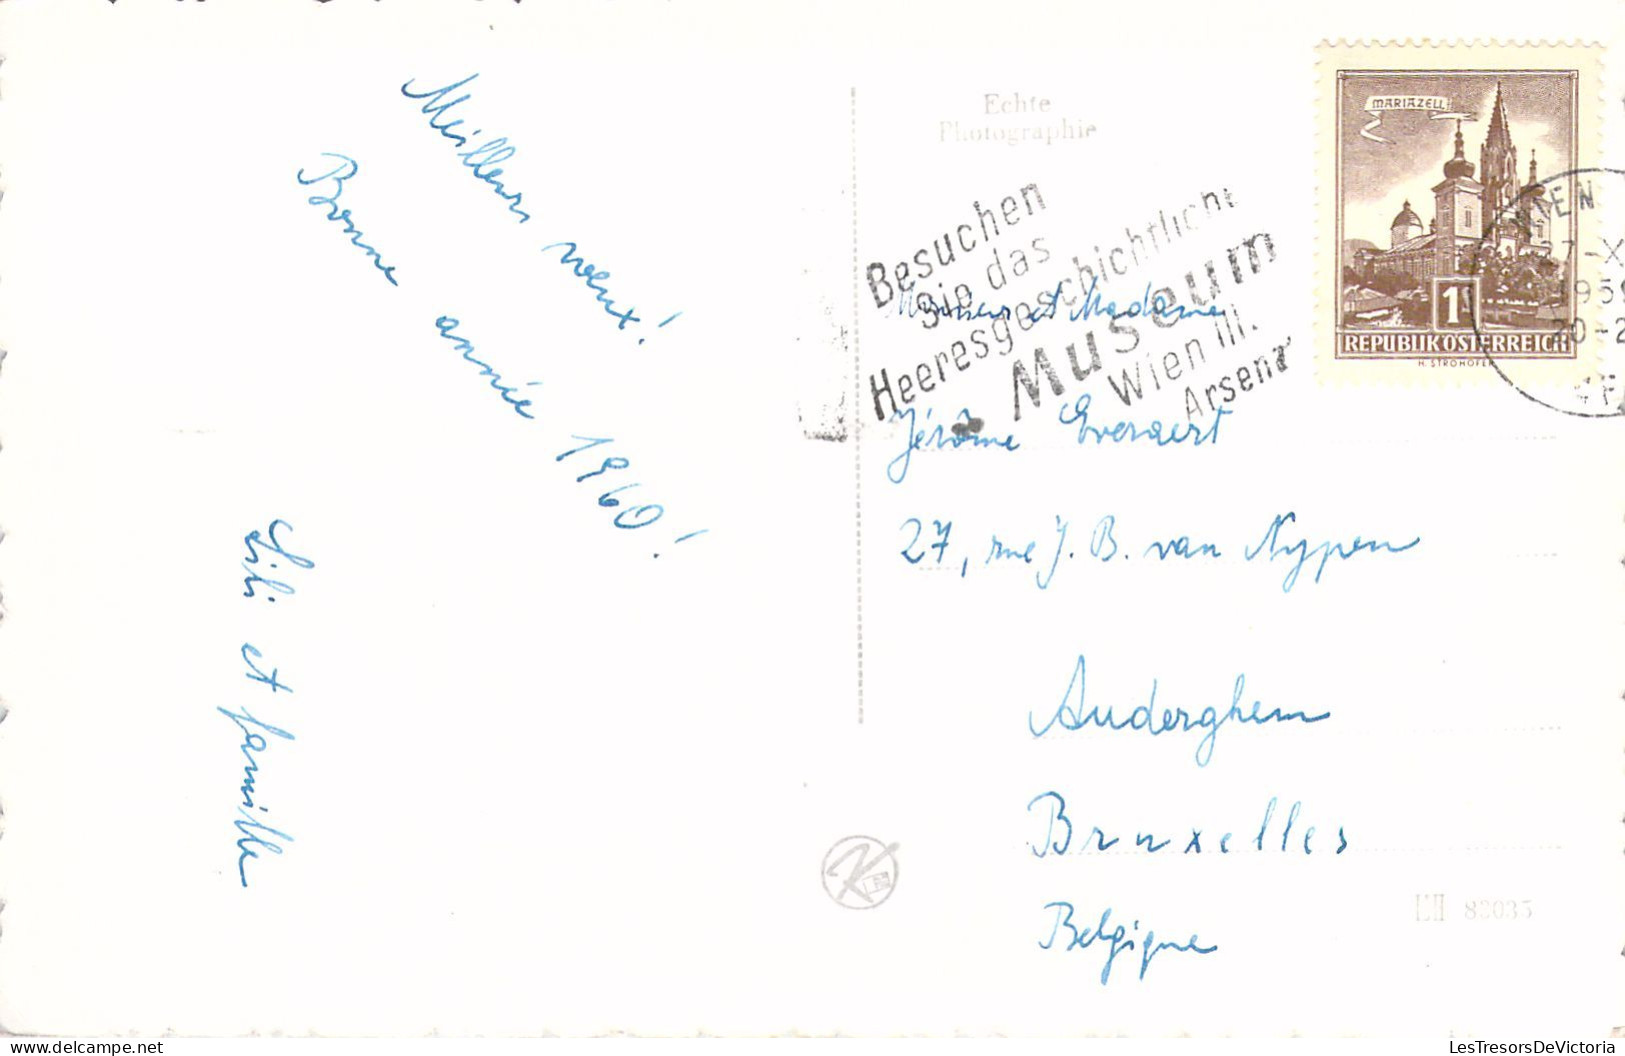 Meilleurs vœux!
Bonne année 1960!
Lili et famille
Echte
Photographie
Besuchen
Sie das
Heeresgeschichtliche
Museum
Wien III.
Arsenal
MARIAZELL
1
REPUBLIK ÖSTERREICH
H. STROHOFER
WIEN
27-X
195
20-2
Monsieur et Madame
Jérôme Everaert
27, rue J. B. van Nypen
Auderghem
Bruxelles
Belgique
K
82035
LesTresorsDeVictoria